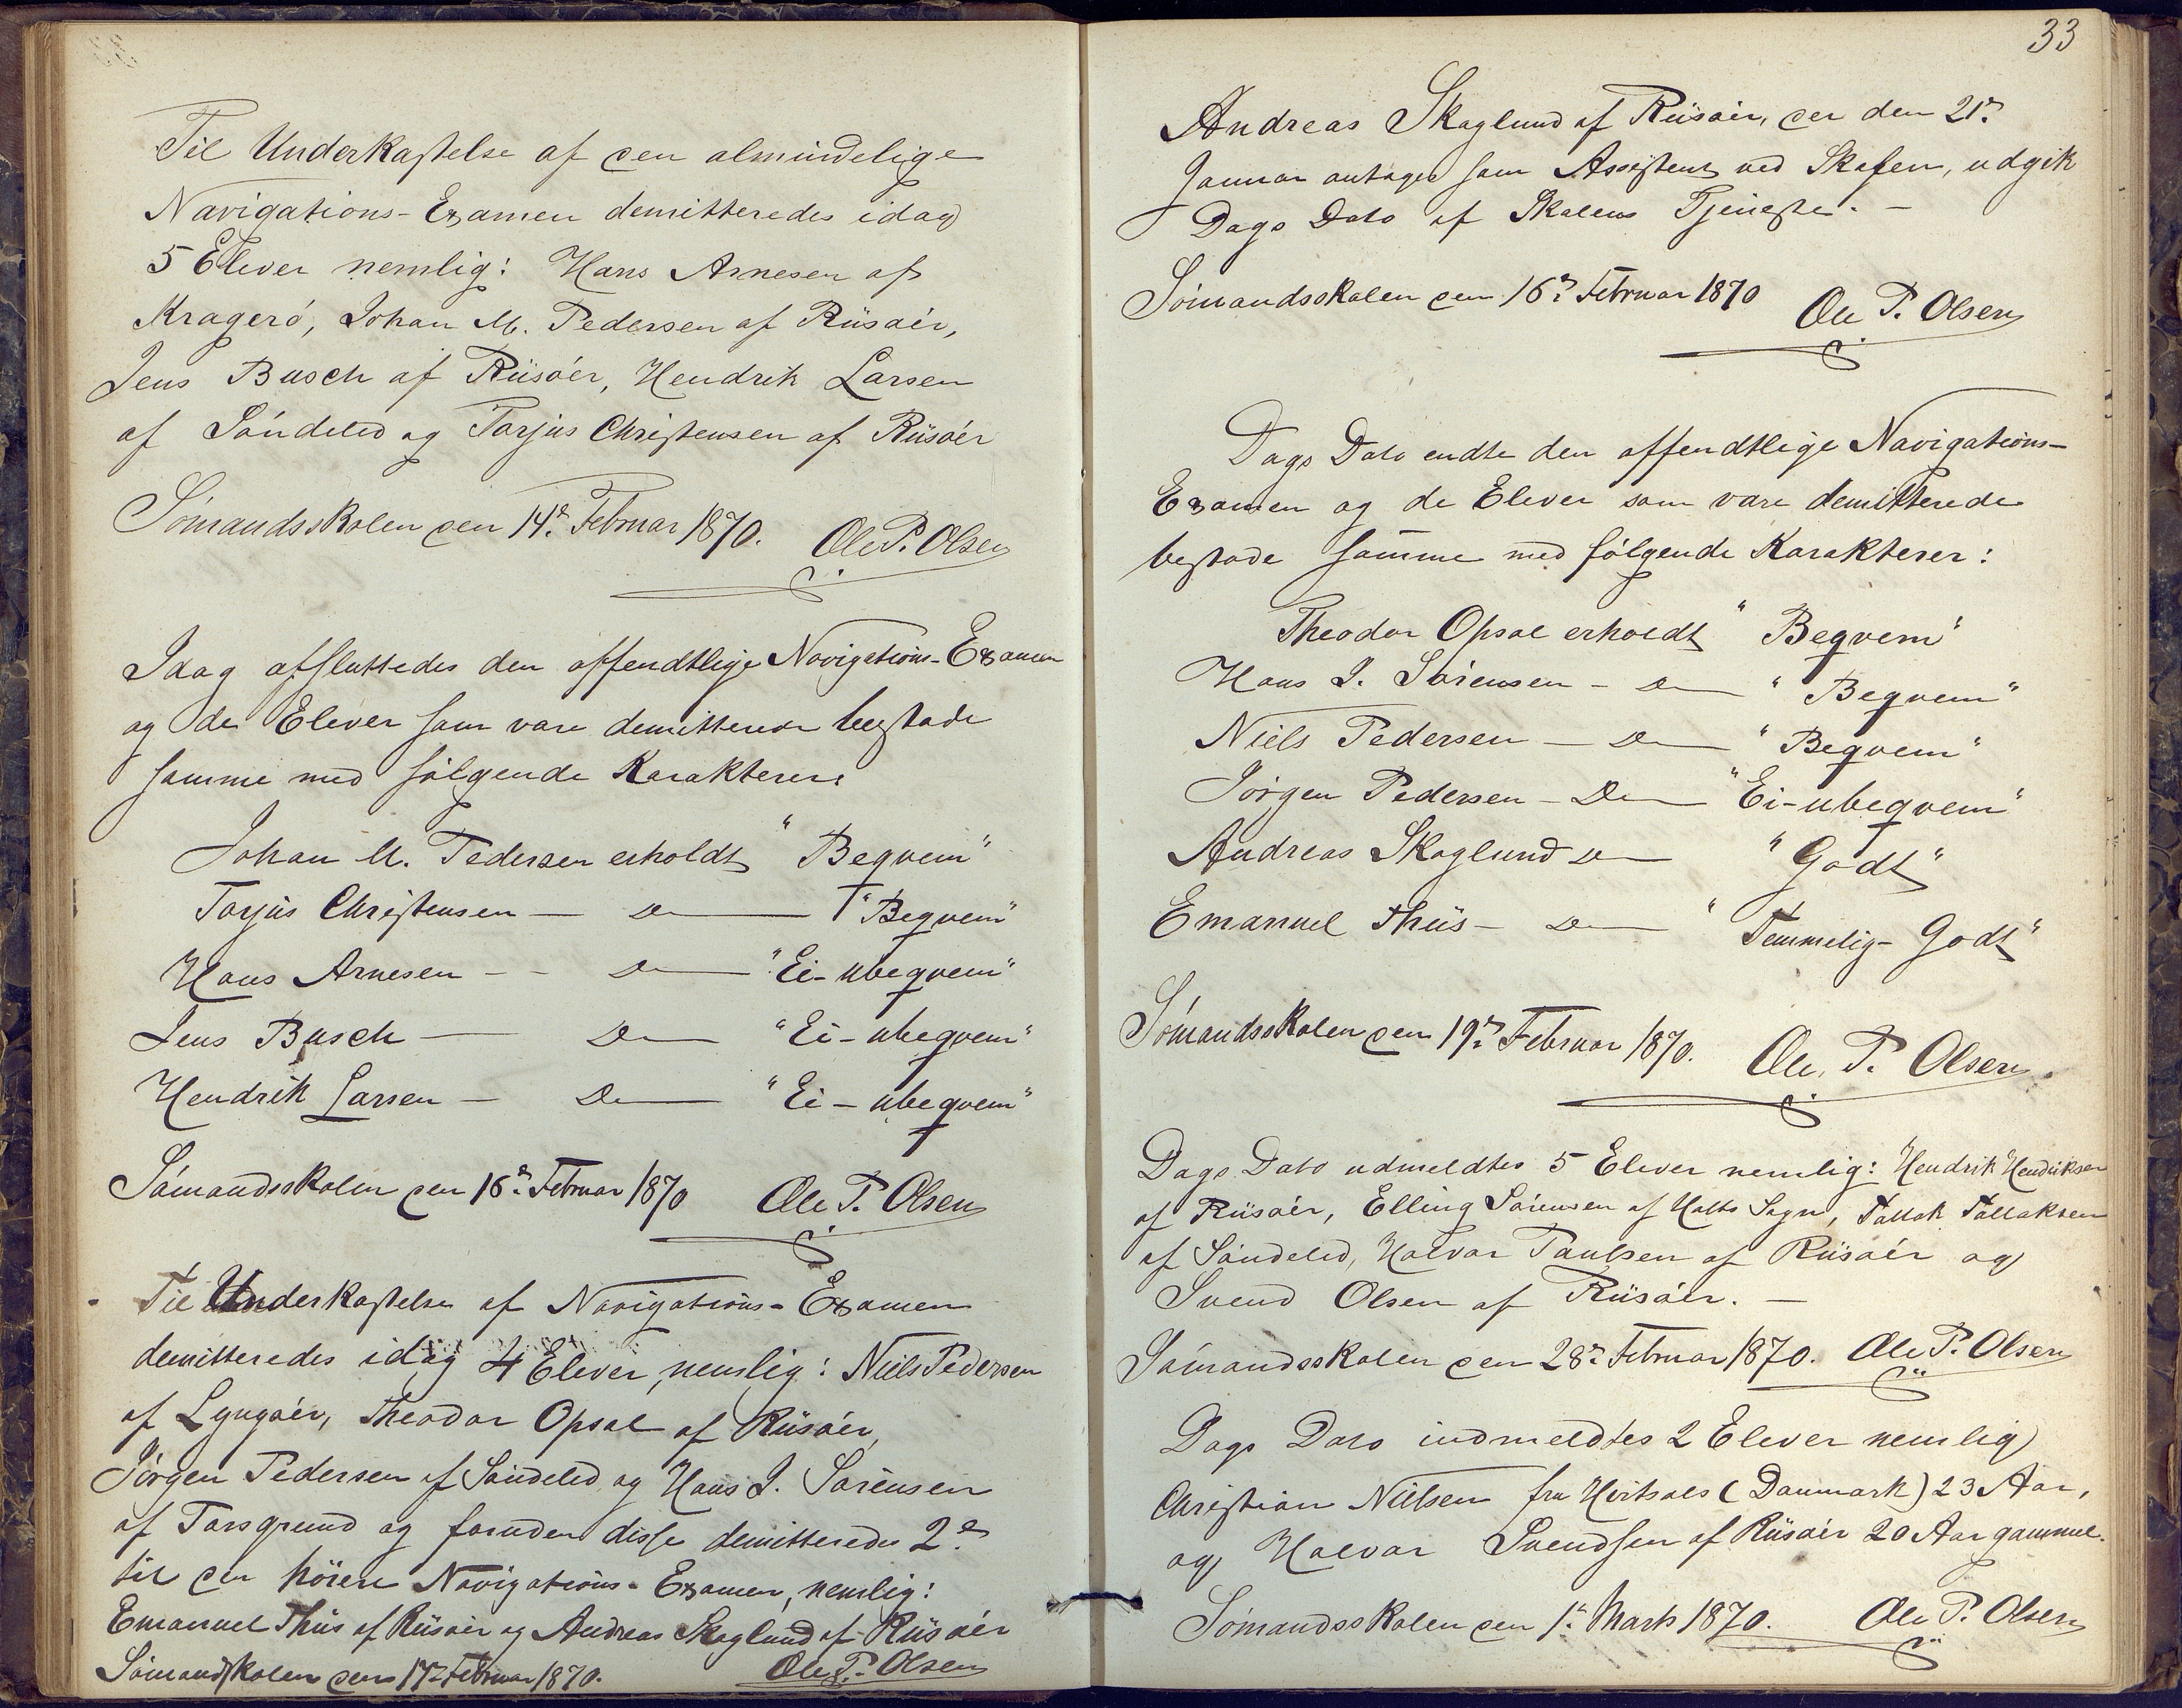 Til Underkastelse af den almindelige
Navigations-Examen demitteredes idag
5 Elever nemlig: Hans Arnesen af
Kragerö, Johan M. Pedersen af Riisöer,
Jens Busch af Riisöer, Hendrik Larsen
af Söndeled og Torjus Christensen af Riisöer
Sömandsskolen den 14de Februar 1870. Ole P. Olsen
Idag afsluttedes den offendtlige Navigations-Examen
og de Elever som vare demitterede bestode
samme med følgende Karakterer:
Johan M. Pedersen erholdt "Beqvem"
Torjus Christensen — Do — "Beqvem"
Hans Arnesen - - Do — "Ei-ubeqvem"
Jens Busch — Do — "Ei-ubeqvem"
Hendrik Larsen — Do — "Ei-ubeqvem"
Sömandsskolen den 16de Februar 1870 Ole P. Olsen
Til Underkastelse af Navigations-Examen
demitteredes idag 4 Elever, nemlig: Niels Pedersen
af Lyngöer, Theodor Opsal af Riisöer,
Jörgen Pedersen af Söndeled og Hans J. Sörensen
af Torsgrund og foruden disse demitteredes 2de
til den höiere Navigations-Examen, nemlig:
Emanuel Thiis af Riisöer og Andreas Skoglund af Riisöer
Sömandsskolen den 17de Februar 1870. Ole P. Olsen
33
Andreas Skoglund af Riisöer, der den 21de
Januar antoges som Assistent ved Skolen, udgik
Dags Dato af Skolens Tjeneste. -
Sömandsskolen den 16de Februar 1870 Ole P. Olsen
Dags Dato endte den offendtlige Navigations-
Examen og de Elever som vare demitterede
bestode samme med følgende Karakterer:
Theodor Opsal erholdt "Beqvem"
Hans J. Sörensen - Do — "Beqvem"
Niels Pedersen - Do — "Beqvem"
Jörgen Pedersen - Do — "Ei-ubeqvem"
Andreas Skoglund Do — "Godt"
Emanuel Thiis - Do — "Temmelig-Godt"
Sömandsskolen den 19de Februar 1870. Ole P. Olsen
Dags Dato udmeldtes 5 Elever nemlig: Hendrik Hendriksen
af Riisöer, Elling Sörensen af Holts Sogn, Tallak Tallaksen
af Söndeled, Halvor Paulsen af Riisöer og
Svend Olsen af Riisöer. -
Sömandsskolen den 28de Februar 1870. Ole P. Olsen
Dags Dato indmeldtes 2 Elever nemlig
Christian Nielsen fra Hirtsals (Danmark) 23 Aar,
og Halvor Svendsen af Riisöer 20 Aar gammel.
Sömandsskolen den 1ste Marts 1870. Ole P. Olsen